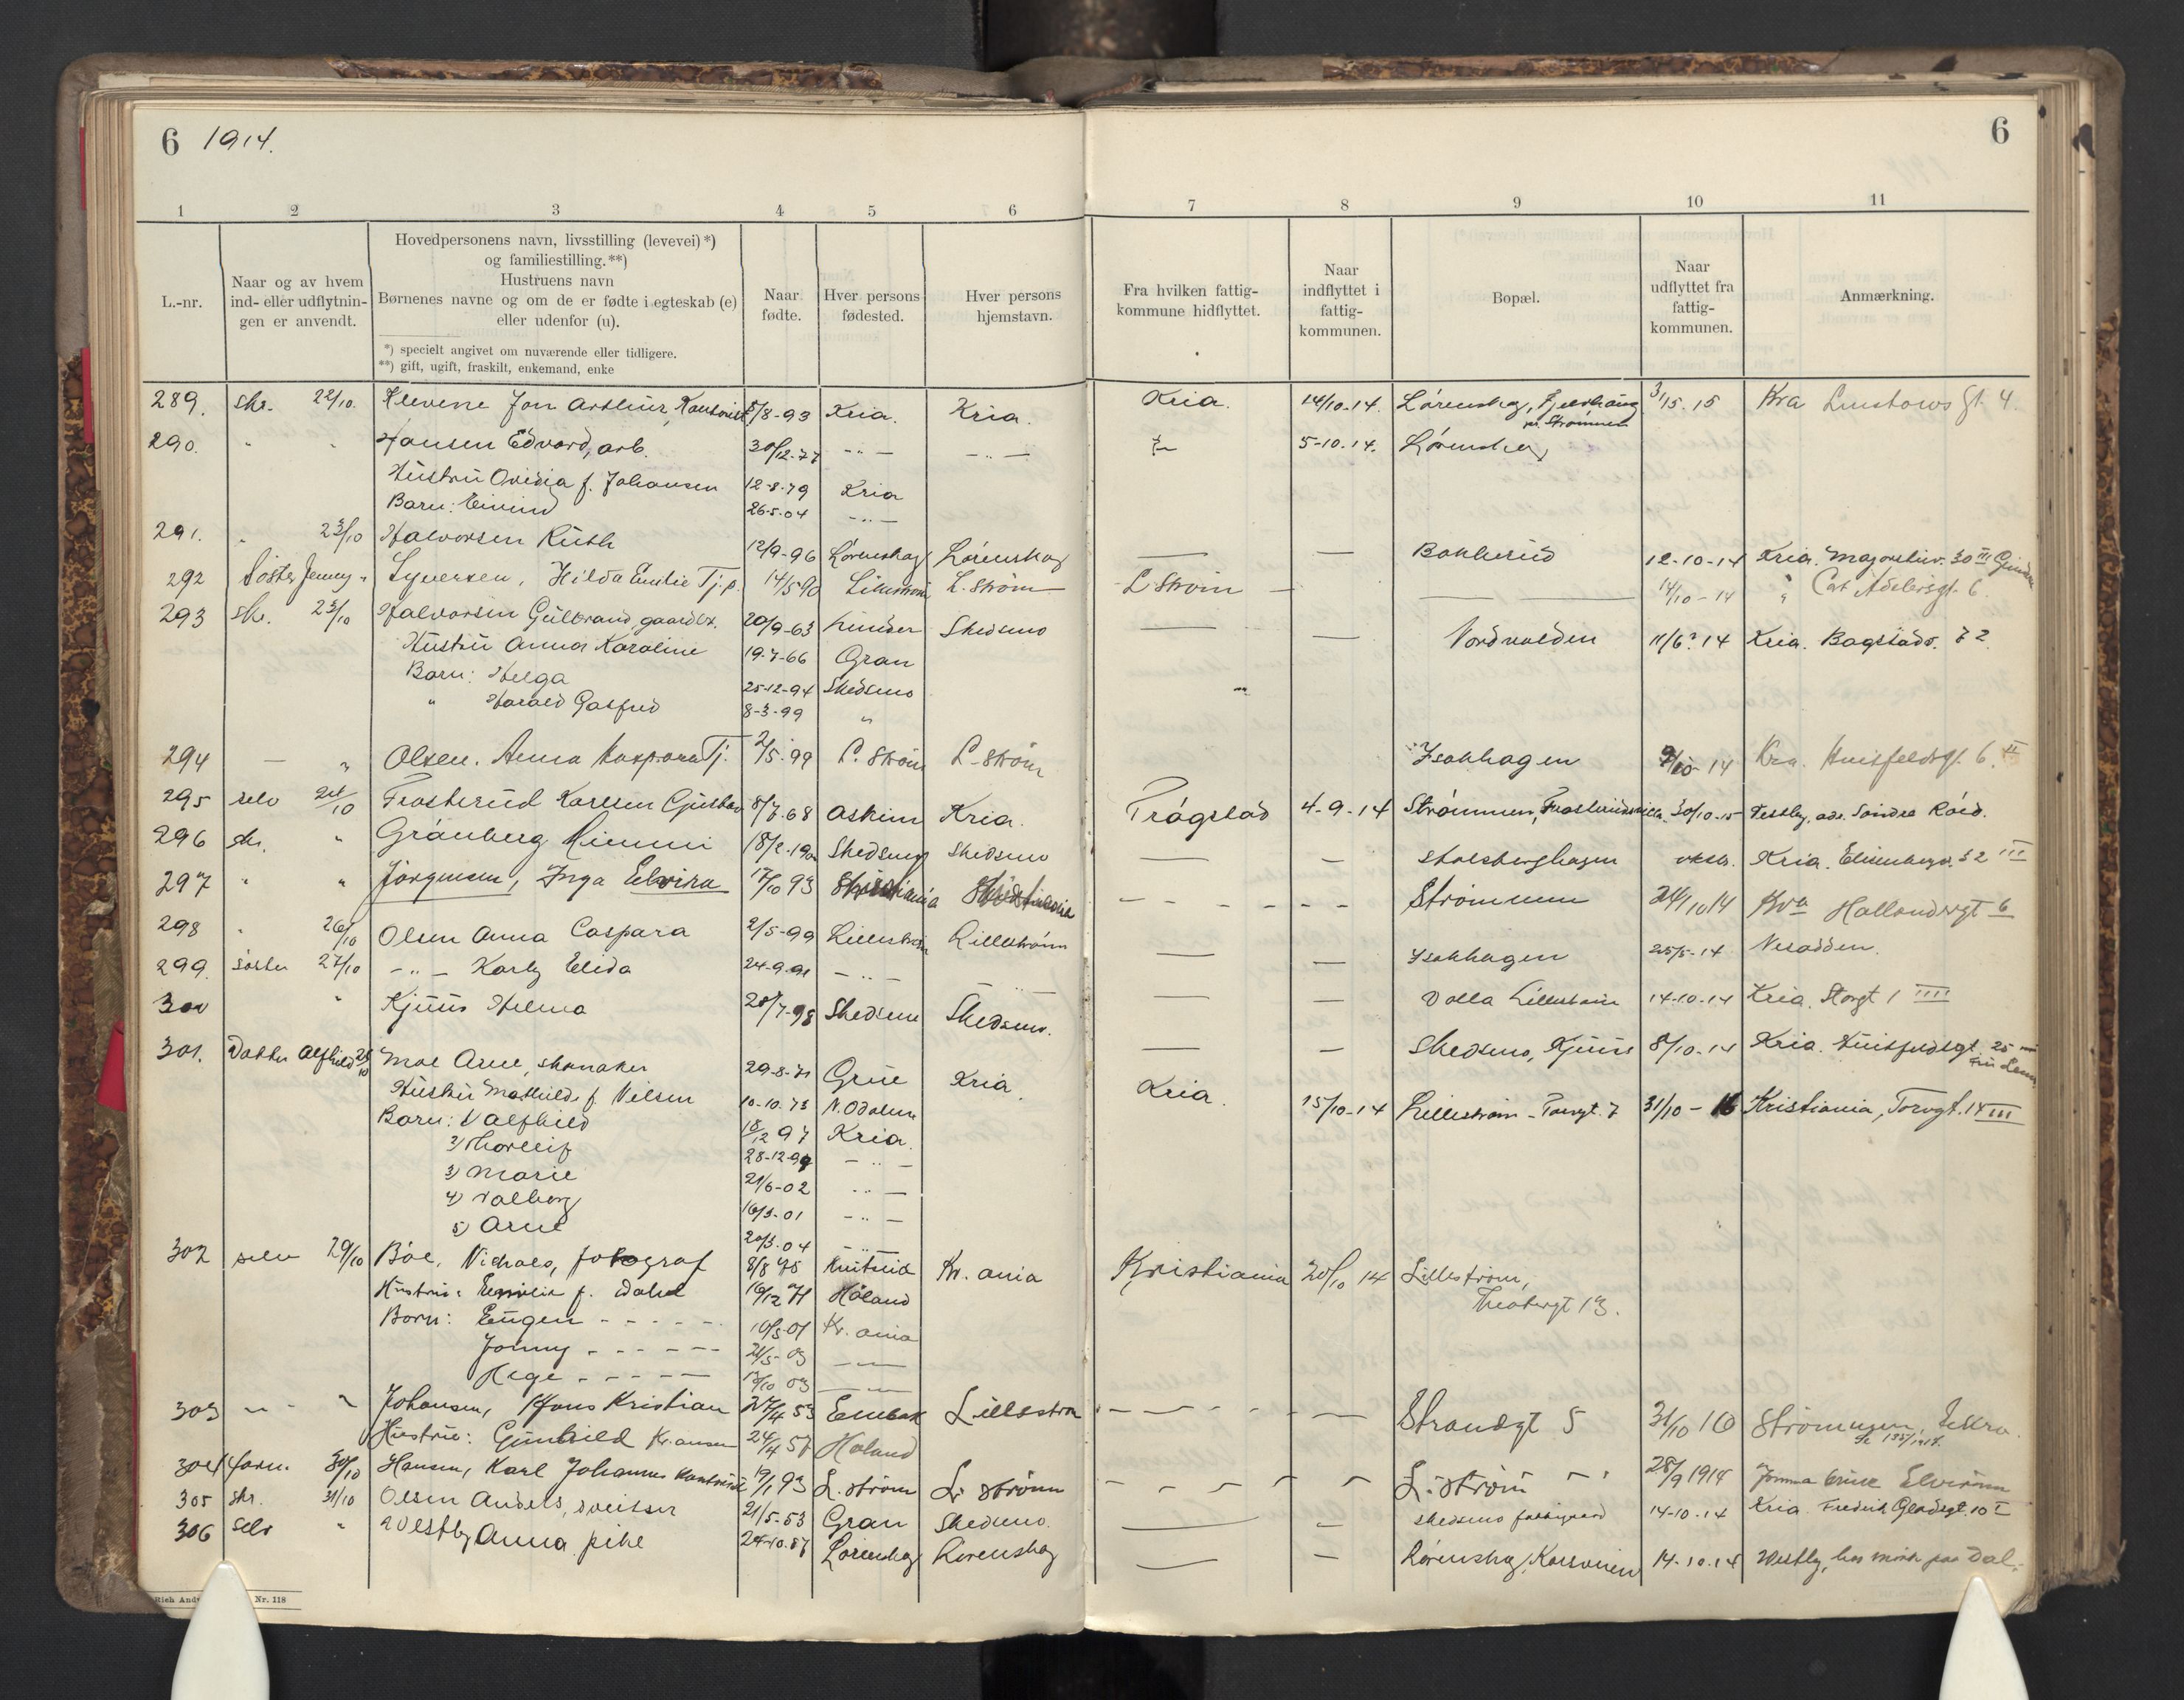 6 1914.
6
1 2 3 4 5 6 7 8 9 10 11
L.-nr.
Naar og av hvem
ind- eller udflytnin-
gen er anvendt.
Hovedpersonens navn, livsstilling (levevei) *)
og familiestilling. **)
Hustruens navn
Børnenes navne og om de er fødte i egteskab (e)
eller udenfor (u).
*) specielt angivet om nuværende eller tidligere.
**) gift, ugift, fraskilt, enkemand, enke
Naar
fødte.
Hver persons
fødested.
Hver persons
hjemstavn.
Fra hvilken fattig-
kommune hidflyttet.
Naar
indflyttet i
fattig-
kommunen.
Bopæl.
Naar
udflyttet fra
fattig-
kommunen.
Anmærkning.
289. skr. 22/10. Klevene Jon Arthur, 5/8-93 Kria. Kria. Kria. 14/10-14. Lørenskog, 15 Kra Linstows gt 4.
Strømmen
290. " " Hansen Edvard, arb. 30/12-77 -"- -"- 5-10-14. Lørenskog
Hustru Ovidia f. Johansen 12-8-79 Kria
Barn: Eivind 26-5-04 -"-
291. " 23/10 Halvorsen Ruth 12/9-96 Lørenskog Lørenskog — — Bakkerud 12-10-14 Kria. Majorstuv. 30 III
292 Søster Jenny " Syversen, Hilda Emilie Tj.p. 14/5 90 Lillestrøm L. strøm L. strøm — — 14/10-14 " Cort Adelersgt. 6
293 skr. 23/10 Halvorsen Gulbrand, gaardbr. 20/9-63 Lunder Skedsmo — — Nordvolden 11/6? 14 Kria. Bogstadv. 72
Hustru Anna Karoline 19-7-66 Gran
Barn: Helga 25-12-94 Skedsmo
" Harald Gotfred 8-3-99 "
294 — " Olsen. Anna Kaspara Tj. 2/5-99 L. Strøm L-strøm Isakhagen 14 Kra. Huitfeldsgt. 6. II
295 selv 24/10 Frosterud Karlsen Gustav 8/7-68 Askim Kria. Trøgstad 4-9-14 Strømmen, 30/10-15 Vestby, adr. Søndre Røed.
296 skr. " Grånberg Mimmi 18/2-190 Skedsmo Skedsmo — — Stalsberghagen Kria. Eilenbergv. 32 III
297 " " Jørgensen, Inga Elvira 17/10 93 - - - - - - Strømmen 24/10 14 Kra Hallandsgt 6
298 " 26/10 Olsen Anna Caspara 2/5-99 Lillestrøm Lillestrøm — — Isakhagen 25/5-14 Nesodden
299. søster 27/10 -"- Karly Elida 24-9-91 -"- -"- — — Volla Lillestrøm 14-10-14 Kria. Storgt 1 IIII
300 " Kjuus Helma 28/7-98 Skedsmo Skedsmo. — — Skedsmo, Kjuus 8/10-14 Kria. Huitfeldsgt. 25
301. Datter Alfhild 28/10 Moe Arne, skomaker 29-8-71 Grue Kria. Kria. 15/10-14 Lillestrøm - Torvgt. 7 31/10-16 Kristiania, Torvgt. 14 III
Hustru Mathilde f. Nilsen 10-10-73 N. Odalen
Barn: 1/ Alfhild 18/12 97 Kria.
2/ Thorleif 28-12-99 -"-
3/ Marie 21/6-02 -"-
4/ Valborg 16/3-01 -"-
5/ Arne 20/3-04 -"-
302 selv 29/10 Bøe, Nicholas, fotograf 8/8 Kr. ania Kristiania 20/10 14 Lillestrøm,
Hustru: Emilie f. Dahl 16/12 71 Høland
Barn: Eugen - - - - - 10/3-01 Kr. ania
Jonny - - - - - 21/5-03 —"—
Hege - - - - - 03 —"—
303 " - " Johansen, Hans Kristian 27/4 53 Enebak Lillestrøm - - - - - Strandgt 5 31/10 16 Strømmen,
Hustru: Gunhild Kr. ansen 24/4 57 Høland
304 30/10 Hansen, Karl Johannes 19/1 93 L. strøm L. strøm - - - - L. strøm 28/9 1914
305 skr. 31/10 Olsen Anders, sveitser 21/5-53 Gran Skedsmo. — — Skedsmo fattiggaard 14-10-14 Kria. Fredrik Gladsgt. 10 I
306 Selv " Westby Anna pike 24-10-87 Lørenskog Lørenskog — — Lørenskog, 14-10-14 Westby,
Nr. 118